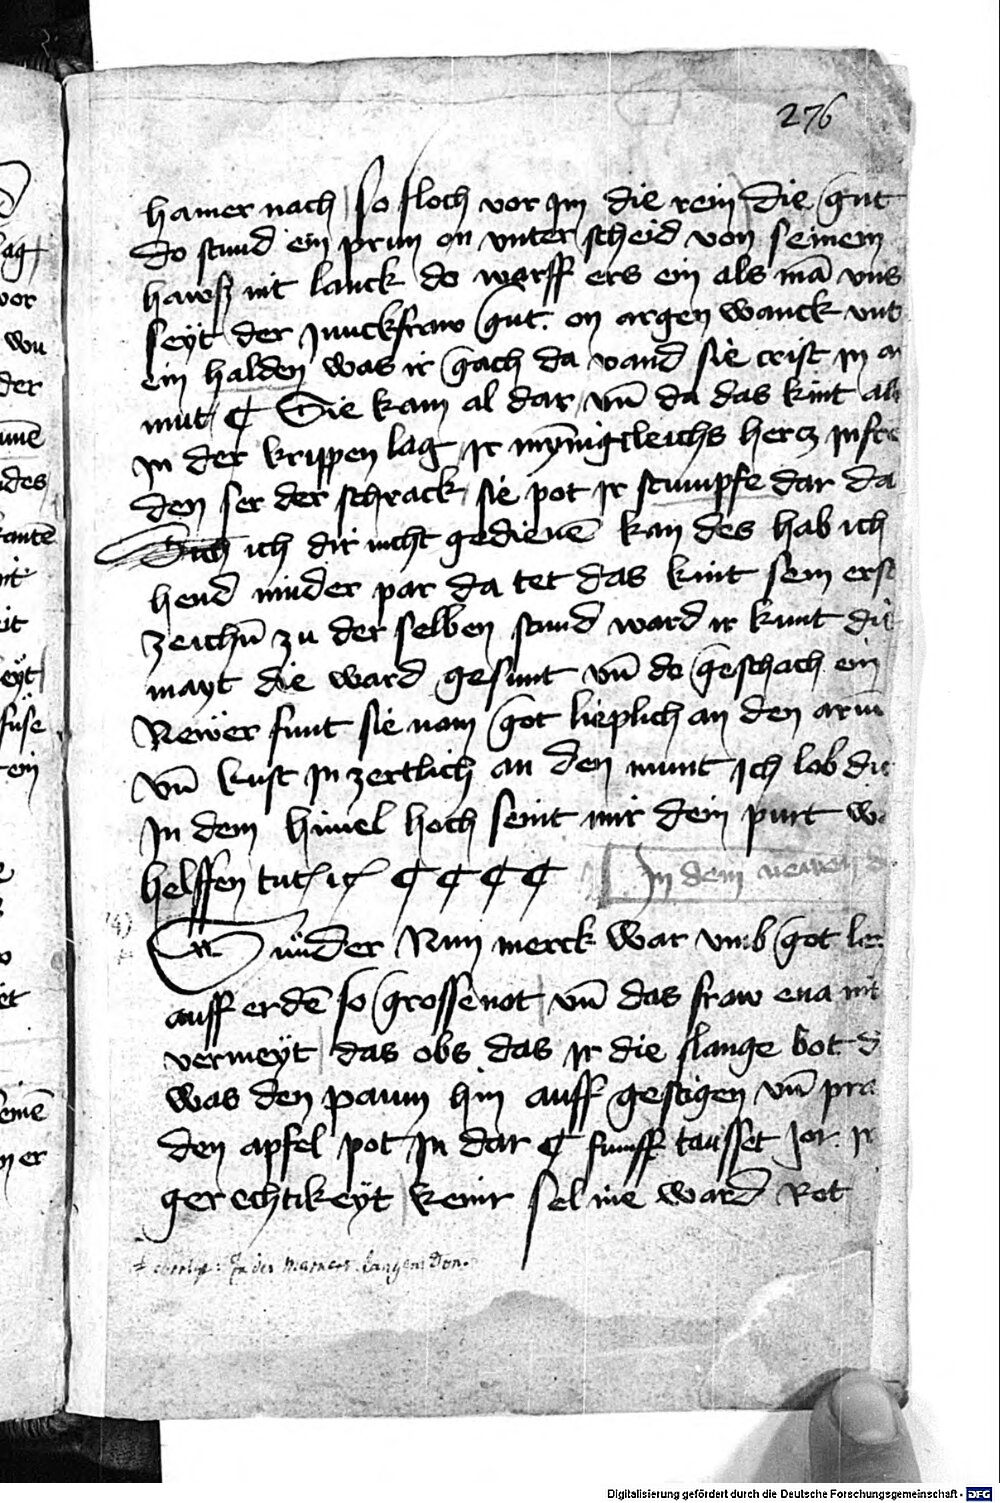 276
hamer nach so floch vor jm die rein die gut
do stund ein prun on vnter scheid von seinem
hawsz nit lanck do warff ers ein als mā vns
seyt der Junckfraw gut. on argen wanck vnt
ein halden was ir gach da vand sie crist in
mut ¶ Sie kam al dar vn̄ da das kint
Jn der krippen lag jr mynigcleichs hercz
den ser der schrack sie pot jr stumpfe dar da
Dich ich dir nicht gedienē kan des hab ich
hend minder par da tet das kint sein
zeichn̄ zu der selben stund ward ir kunt
mayt die ward gesunt vn̄ do geschach ein
Newer funt sie nam got lieplich an den
vn̄ kust jn zertlich an den munt jch lob
Jn dem himel hoch seint mir dein purt
helffen ¶ ¶ ¶ ¶ Jn dem newen
Sunder Nun merck war vmb got
auff erdē so grosse not vn̄ das fraw eua nit
vermeyt das obs das jr die slange bot
was den paum hin auff gestigen vn̄
den apfel pot jn dar ¶ funff tausset jor
gerechtikeyt keinr sel nie ward Rot
In des Marners langem Don.
Digitalisierung gefördert durch die Deutsche Forschungsgemeinschaft - DFG